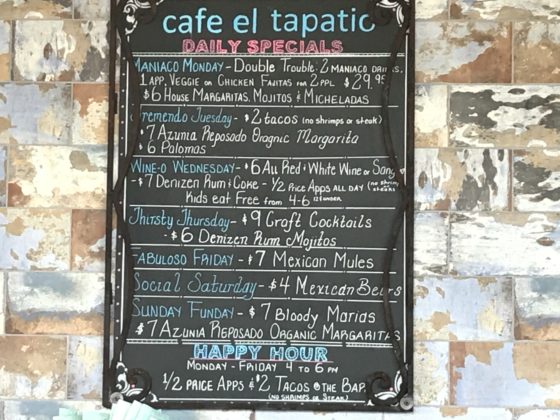 cafe el tapatio
DAILY SPECIALS
MANIACO MONDAY - DOUBLE TROUBLE: 2 MANIACO DRINKS,
1 APP, VEGGIE OR CHICKEN FAJITAS FOR 2 PPL $29.95
$6 HOUSE MARGARITAS, MOJITOS & MICHELADAS
Tremendo Tuesday - $2 tacos (no shrimps or steak)
$7 Azunia Reposado Oraganic Margarita
$6 Palomas
WINE-O WEDNESDAY - $6 All Red & White Wine or Sang
$7 Denizen Rum & Coke - 1/2 Price Apps ALL DAY (no shrimp
steaks
Kids eat Free from 4-6 12 & under
Thirsty Thursday - $9 Craft Cocktails
- $6 Denizen Rum Mojitos
FABULOSO FRIDAY - $7 Mexican Mules
Social Saturday - $4 Mexican Beers
SUNDAY FUNDAY - $7 Bloody Marias
$7 AZUNIA REPOSADO ORGANIC MARGARITAS
HAPPY HOUR
MONDAY - FRIDAY 4 TO 6 PM
1/2 PRICE APPS & $2 TACOS @ THE BAR
(NO SHRIMPS OR STEAK)